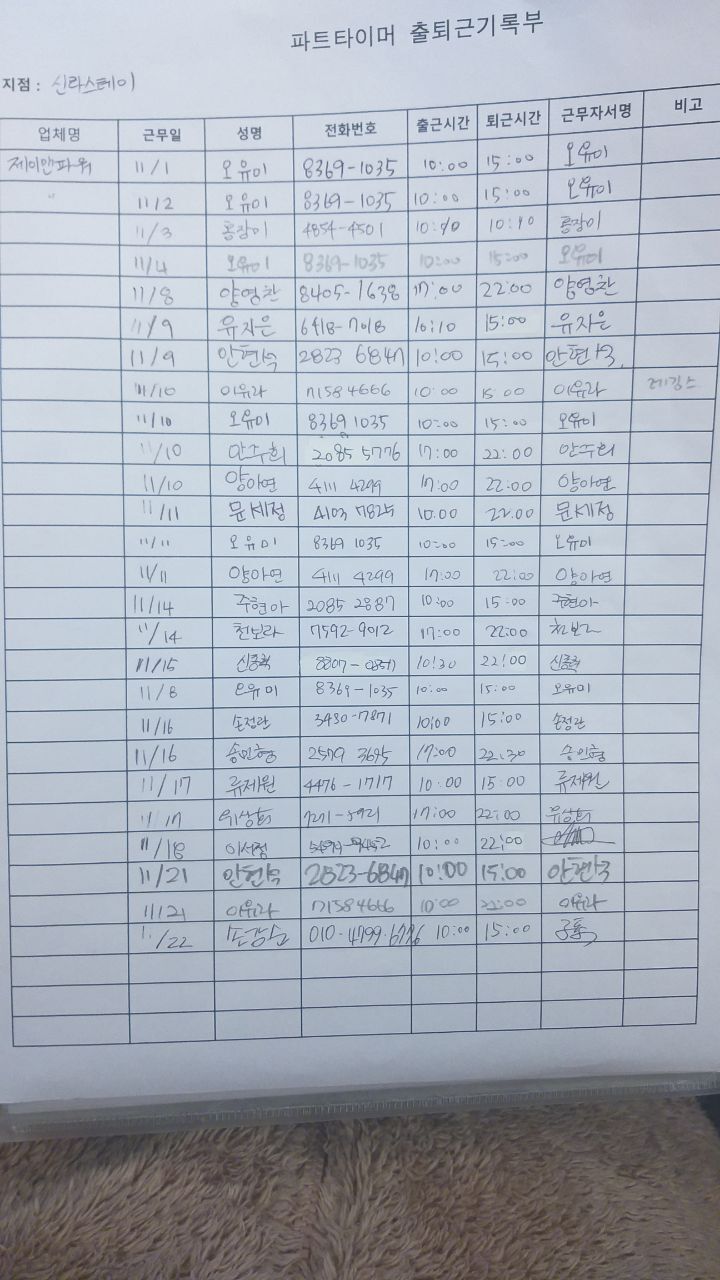 파트타이머 출퇴근기록부
지점 : 신라스테이
업체명 근무일 성명 전화번호 출근시간 퇴근시간 근무자서명 비고
제이앤파워 11/1 오유미 8369-1035 10:00 15:00 오유미
" 11/2 오유미 8369-1035 10:00 15:00 오유미
11/3 4854-4501
11/4 오유미 8369-1035 10:00 15:00 오유미
11/8 양영찬 8405-1638 17:00 22:00 양영찬
11/9 유지은 6418-7018 10:10 15:00 유지은
11/9 2823 6847 10:00 15:00
11/10 이유라 7158 4666 10:00 15 00 이유라
11/10 오유미 8369 1035 10:00 15:00 오유미
11/10 안주희 2085 5776 17:00 22:00 안주희
11/10 양아연 4111 4299 17:00 22:00 양아연
11/11 문세정 4103 7825 10:00 22:00 문세정
11/11 오유미 8369 1035 10:00 15:00 오유미
11/11 양아연 4111 4299 17:00 22:00 양아연
11/14 주현아 2085 2887 10:00 15:00 주현아
11/14 천보라 7592-9012 17:00 22:00 천보라
11/15 10:30 22:00
11/8 오유미 8369-1035 10:00 15:00 오유미
11/16 손정란 3430-7871 10:00 15:00 손정란
11/16 송민형 2579 3695 17:00 22:30 송민형
11/17 류제원 4476-1717 10:00 15:00 류제원
11/17 위상희 17:00 22:00 위상희
11/18 이서정 10:00 22:00
11/21 2823-6847 10:00 15:00
11/21 이유라 7158 4666 10:00 22:00 이유라
11/22 10:00 15:00